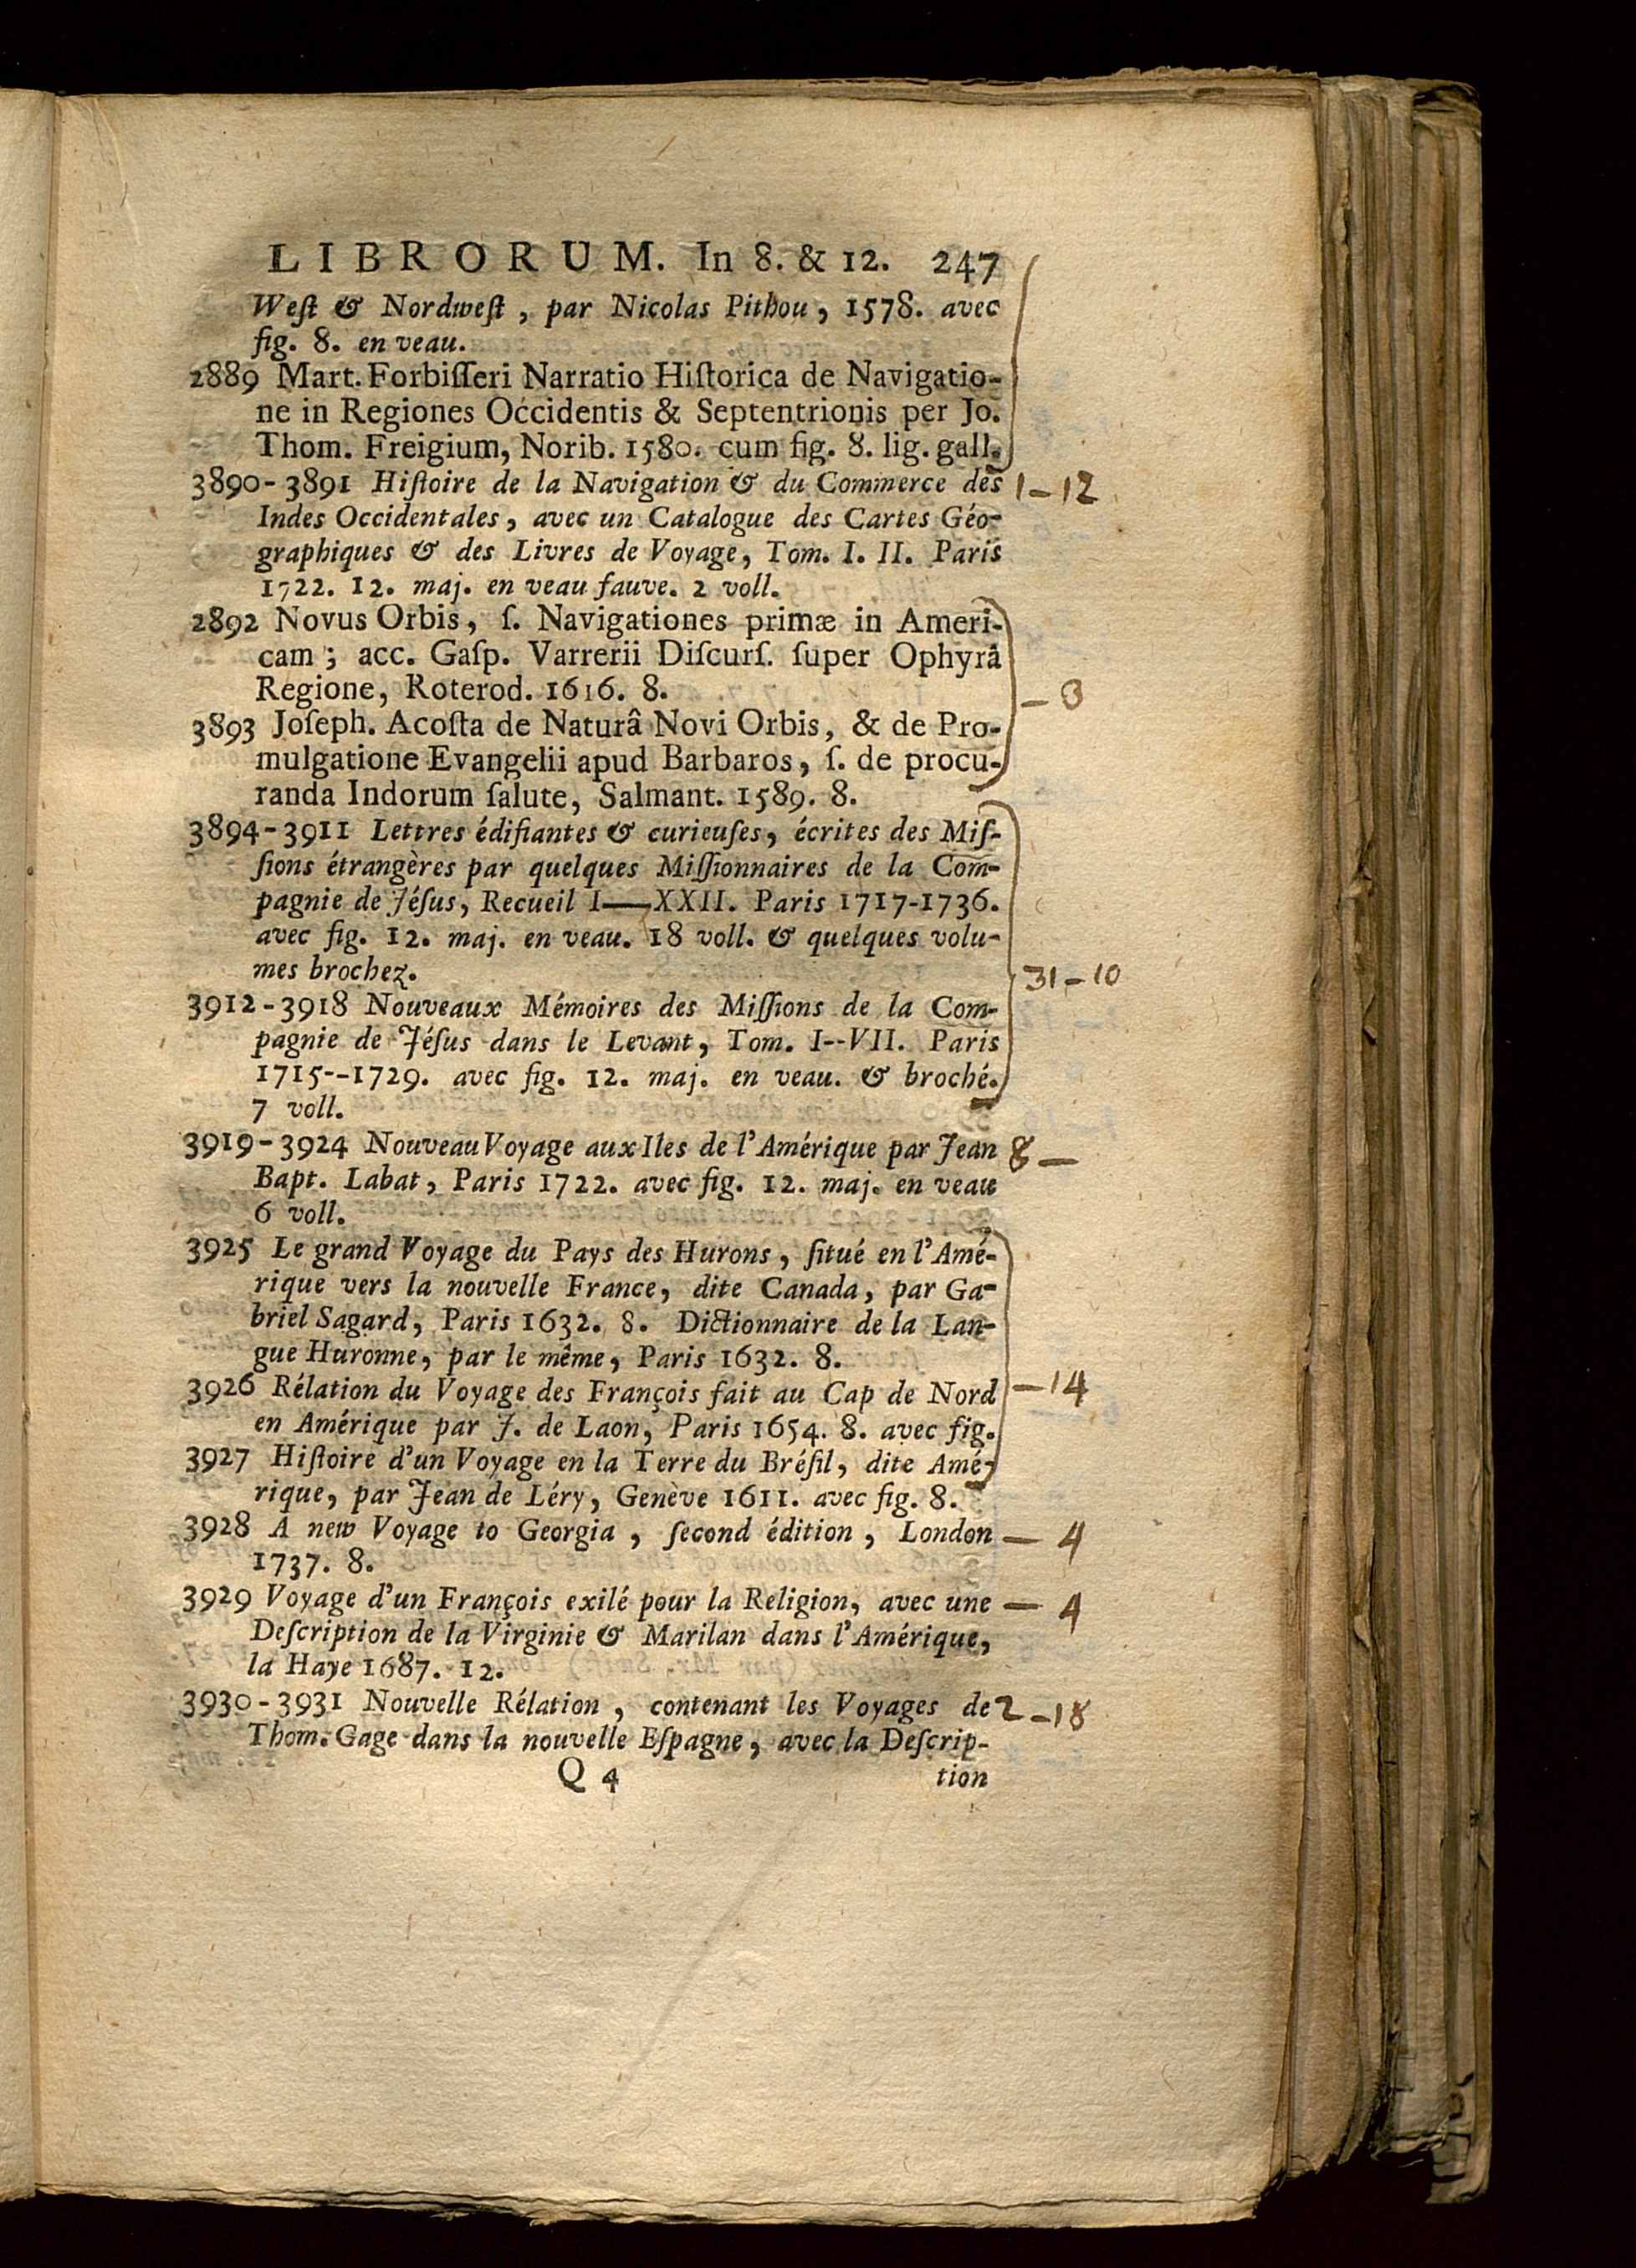 LIBRORUM. In 8. & 12. 247
Weſt & Nordweſt, par Nicolas Pithou, 1578. avec
fig. 8. en veau.
2889 Mart. Forbiſſeri Narratio Hiſtorica de Navigatio-
ne in Regiones Occidentis & Septentrionis per Jo.
Thom. Freigium, Norib. 1580. cum fig. 8. lig. gall.
3890-3891 Hiſtoire de la Navigation & du Commerce des 1-12
Indes Occidentales, avec un Catalogue des Cartes Géo-
graphiques & des Livres de Voyage, Tom. I. II. Paris
1722. 12. maj. en veau fauve. 2 voll.
2892 Novus Orbis, ſ. Navigationes primæ in Ameri-
cam; acc. Gaſp. Varrerii Diſcurſ. ſuper Ophyrâ
Regione, Roterod. 1616. 8.
3893 Joſeph. Acoſta de Naturâ Novi Orbis, & de Pro-
mulgatione Evangelii apud Barbaros, ſ. de procu-
randa Indorum ſalute, Salmant. 1589. 8.
3894-3911 Lettres édifiantes & curieuſes, écrites des Miſ-
ſions étrangères par quelques Miſſionnaires de la Com-
pagnie de Jéſus, Recueil I—XXII. Paris 1717-1736.
avec fig. 12. maj. en veau. 18 voll. & quelques volu-
mes brochez.
31-10
3912-3918 Nouveaux Mémoires des Miſſions de la Com-
pagnie de Jéſus dans le Levant, Tom. I--VII. Paris
1715--1729. avec fig. 12. maj. en veau. & broché.
7 voll.
3919-3924 Nouveau Voyage aux Iles de l'Amérique par Jean 8 —
Bapt. Labat, Paris 1722. avec fig. 12. maj. en veau
6 voll.
3925 Le grand Voyage du Pays des Hurons, ſitué en l'Amé-
rique vers la nouvelle France, dite Canada, par Ga-
briel Sagard, Paris 1632. 8. Dictionnaire de la Lan-
gue Huronne, par le même, Paris 1632. 8.
3926 Rélation du Voyage des François fait au Cap de Nord —14
en Amérique par J. de Laon, Paris 1654. 8. avec fig.
3927 Hiſtoire d'un Voyage en la Terre du Bréſil, dite Amé-
rique, par Jean de Léry, Genève 1611. avec fig. 8.
3928 A new Voyage to Georgia, ſecond édition, London — 4
1737. 8.
3929 Voyage d'un François exilé pour la Religion, avec une — 4
Deſcription de la Virginie & Marilan dans l'Amérique,
la Haye 1687. 12.
3930-3931 Nouvelle Rélation, contenant les Voyages de 2-18
Thom. Gage dans la nouvelle Eſpagne, avec la Deſcrip-
Q 4 tion